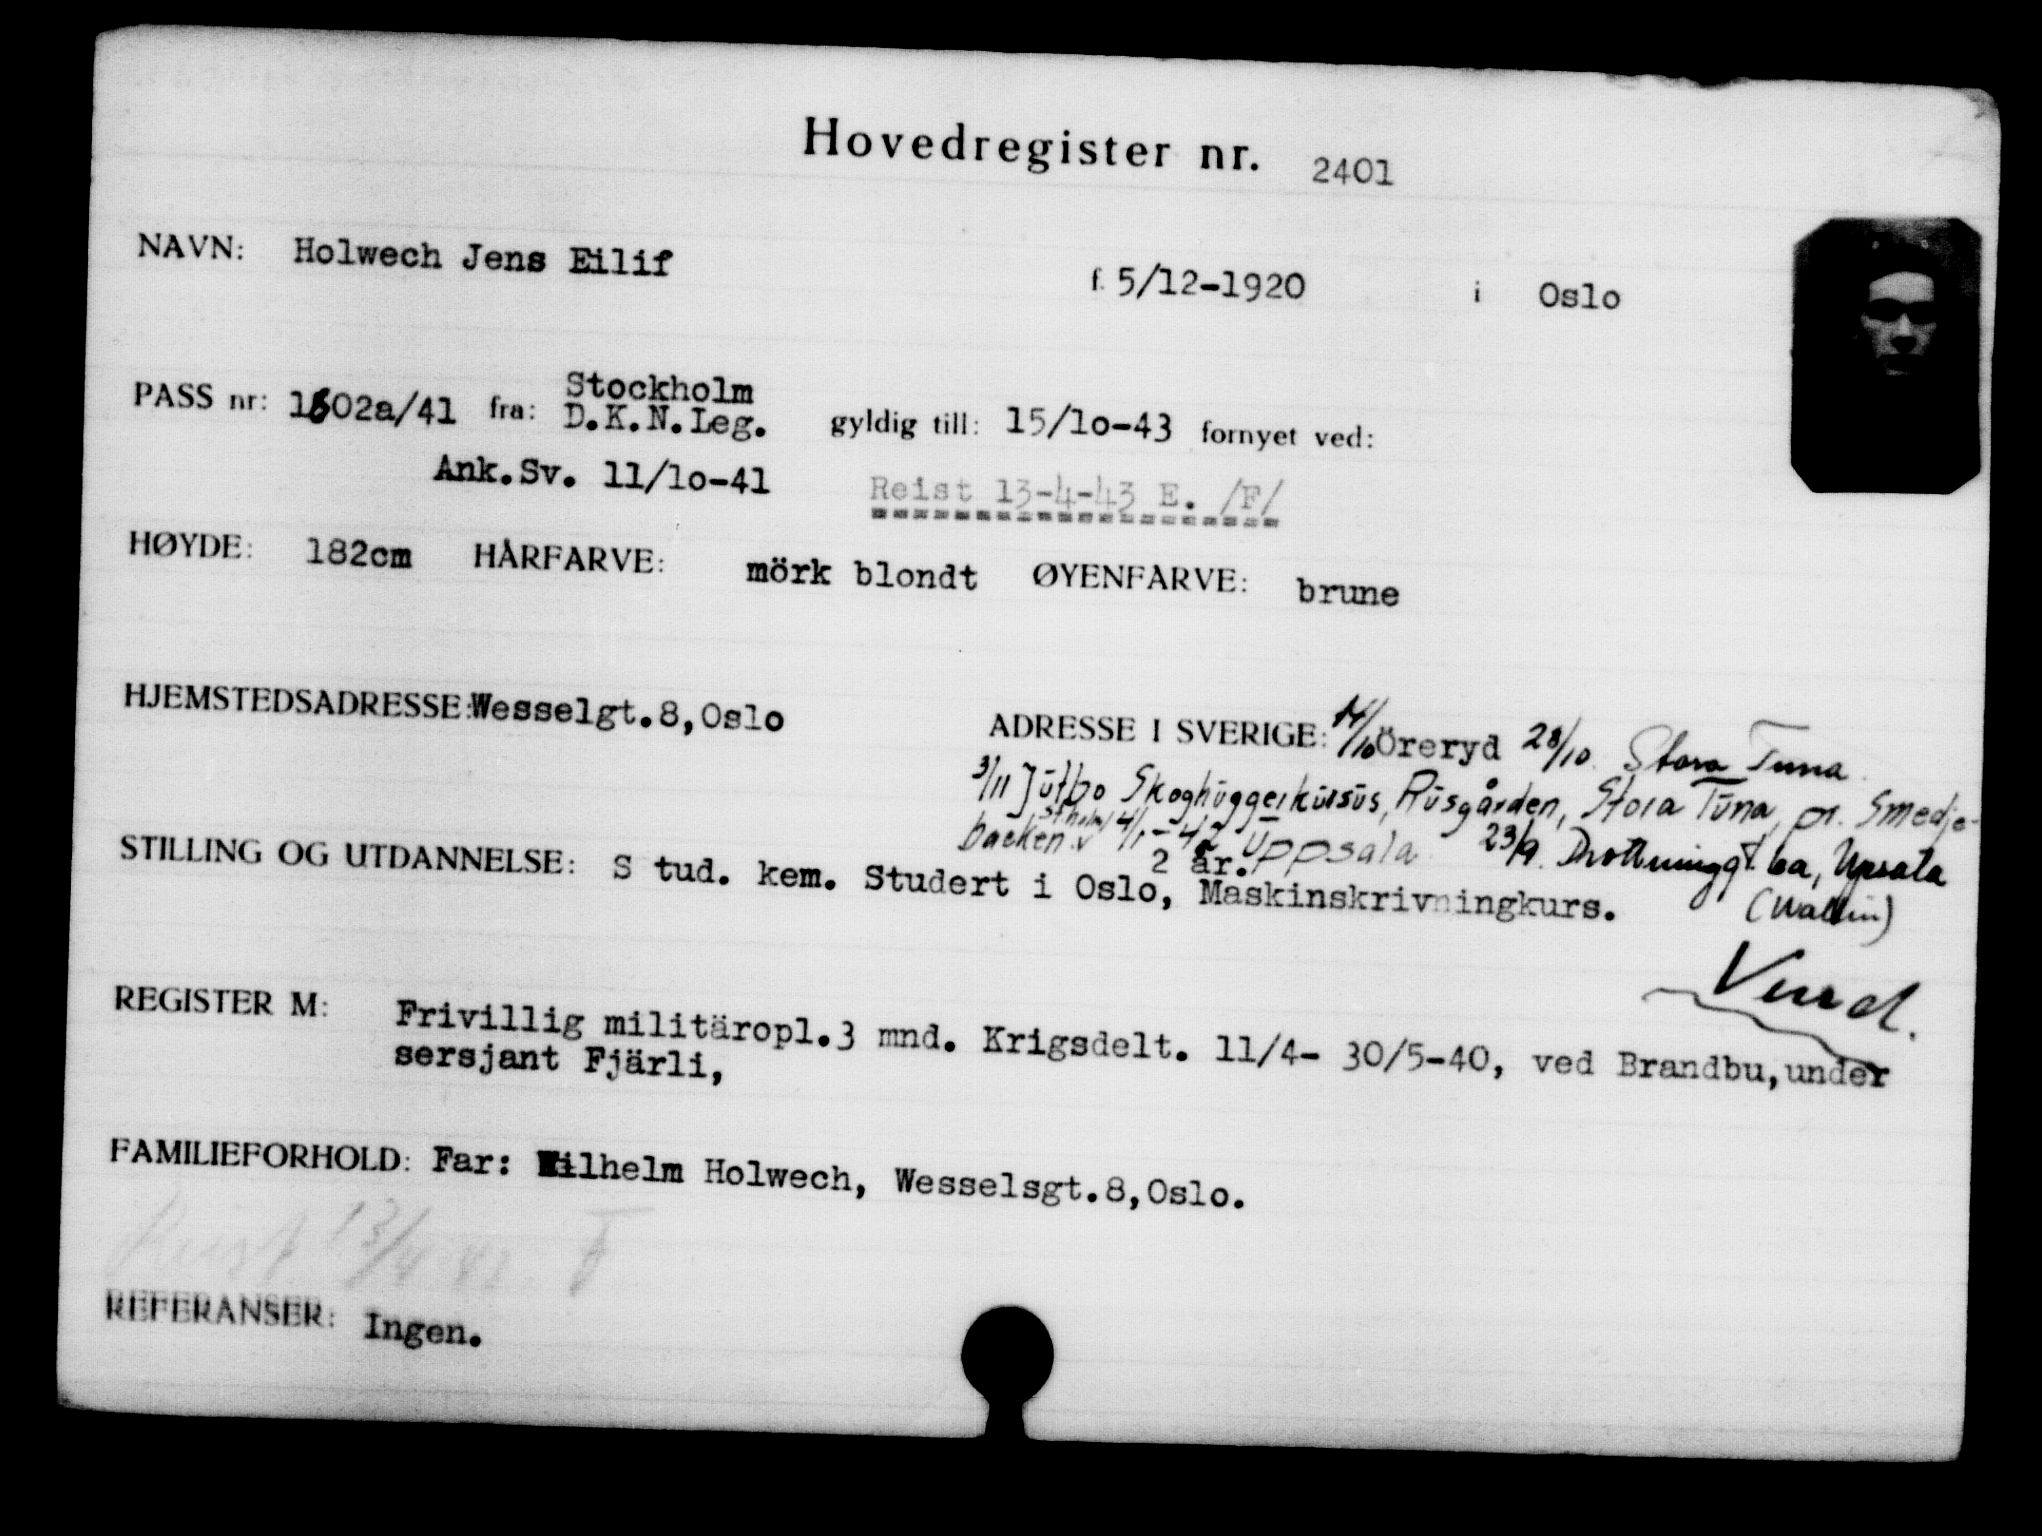 Hovedregister nr. 2401
NAVN: Holwech Jens Eilif f. 5/12-1920 i Oslo
PASS nr: 1602a/41 fra: Stockholm D.K.N.Leg. gyldig till: 15/1o-43 fornyet ved:
Ank.Sv. 11/1o-41 Reist 13-4-43 E. /F/
HØYDE: 182cm HÅRFARVE: mörk blondt ØYENFARVE: brune
HJEMSTEDSADRESSE: Wesselgt.8,Oslo ADRESSE I SVERIGE: 14/10 Öreryd 28/10. Stora Tuna.
3/11 Jutbo Skoghuggerkursus, Rusgården, Stora Tuna, pr. Smedje-
backen. Stholm 4/1-42 Uppsala. 23/9. Drottninggt. 6a, Upsala
(Wallin)
STILLING OG UTDANNELSE: S tud. kem. Studert i Oslo, 2 år. Maskinskrivningkurs.
Vend.
REGISTER M: Frivillig militäropl.3 mnd. Krigsdelt. 11/4- 30/5-40, ved Brandbu,under
sersjant Fjärli,
FAMILIEFORHOLD: Far: Wilhelm Holwech, Wesselsgt.8,Oslo.
Reist 13/4 43. F
REFERANSER: Ingen.